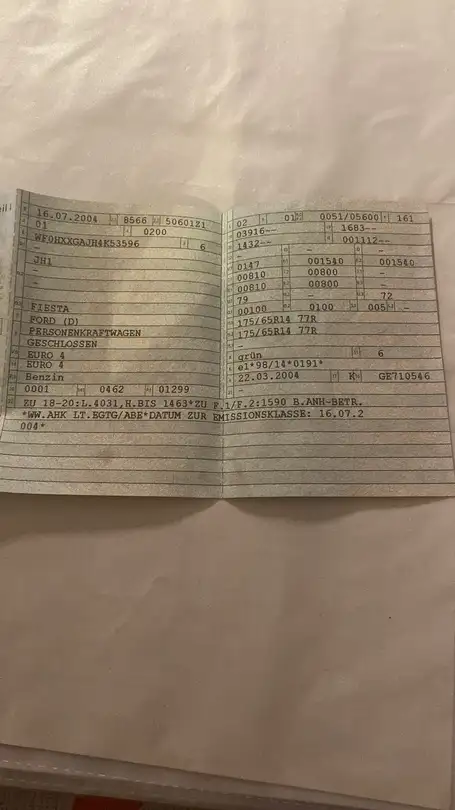 16.07.2004 8566 5060121
01 0200
WF0HXXGAJH4K53596 6
-
JH1
-
-
FIESTA
FORD (D)
PERSONENKRAFTWAGEN
GESCHLOSSEN
EURO 4
EURO 4
Benzin
0001 0462 01299
02 01 0051/05600 161
03916-- 1683--
1432-- 001112--
- -
0147 001540 001540
00810 00800 -
00810 00800 -
79 72
00100 9100 005 -
175/65R14 77R
175/65R14 77R
-
grün 6
e1*98/14*0191*
22.03.2004 K GE710546
-
ZU 18-20:L.4031,H.BIS 1463*ZU F.1/F.2:1590 B.ANH-BETR.
*WW.AHK LT.EGTG/ABE*DATUM ZUR EMISSIONSKLASSE: 16.07.2
004*